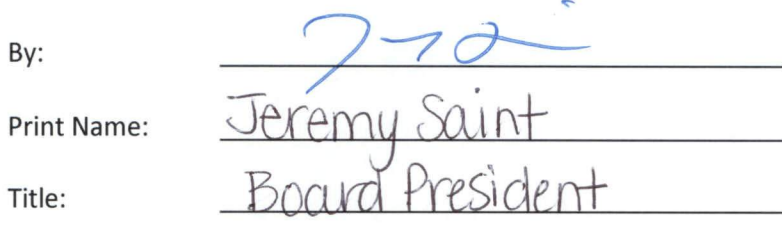 By:
Print Name: Jeremy Saint
Title: Board President